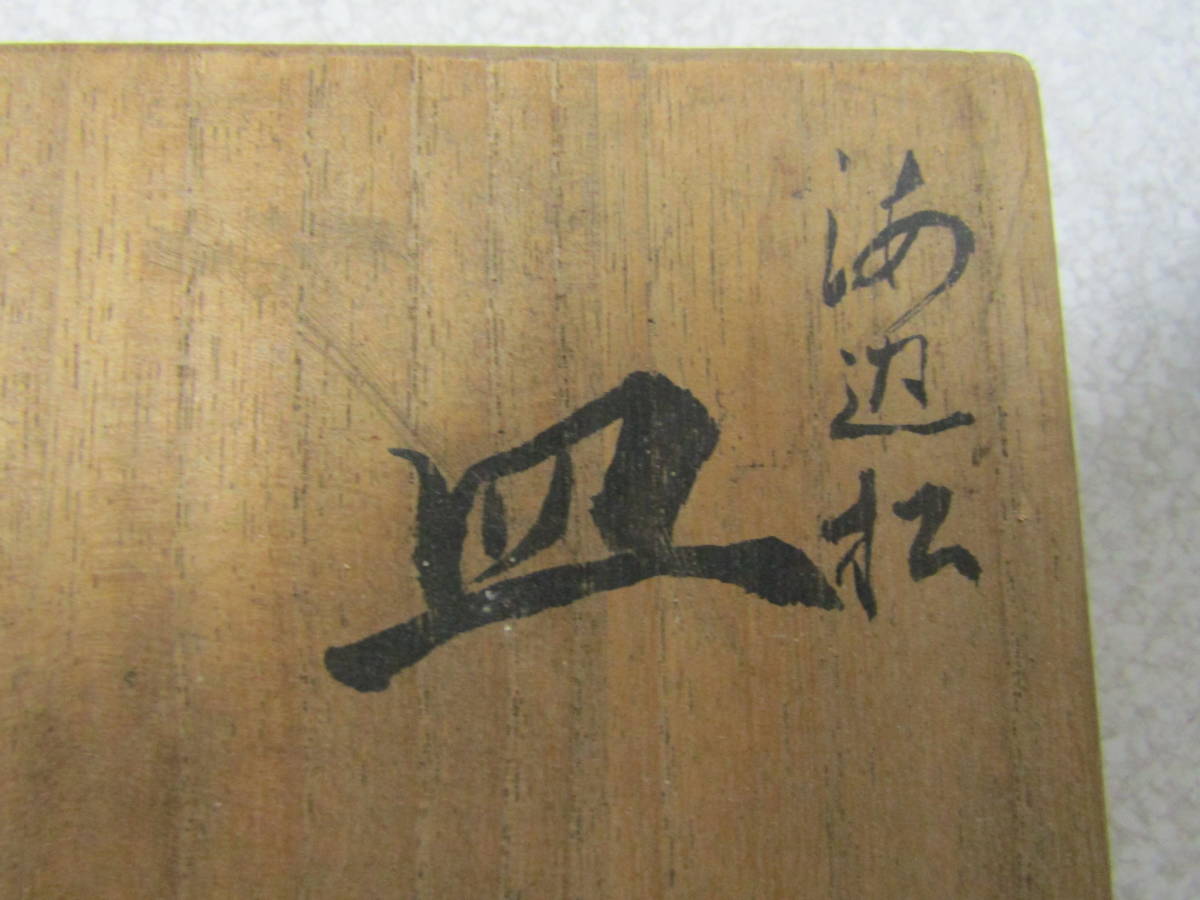 海辺松
皿